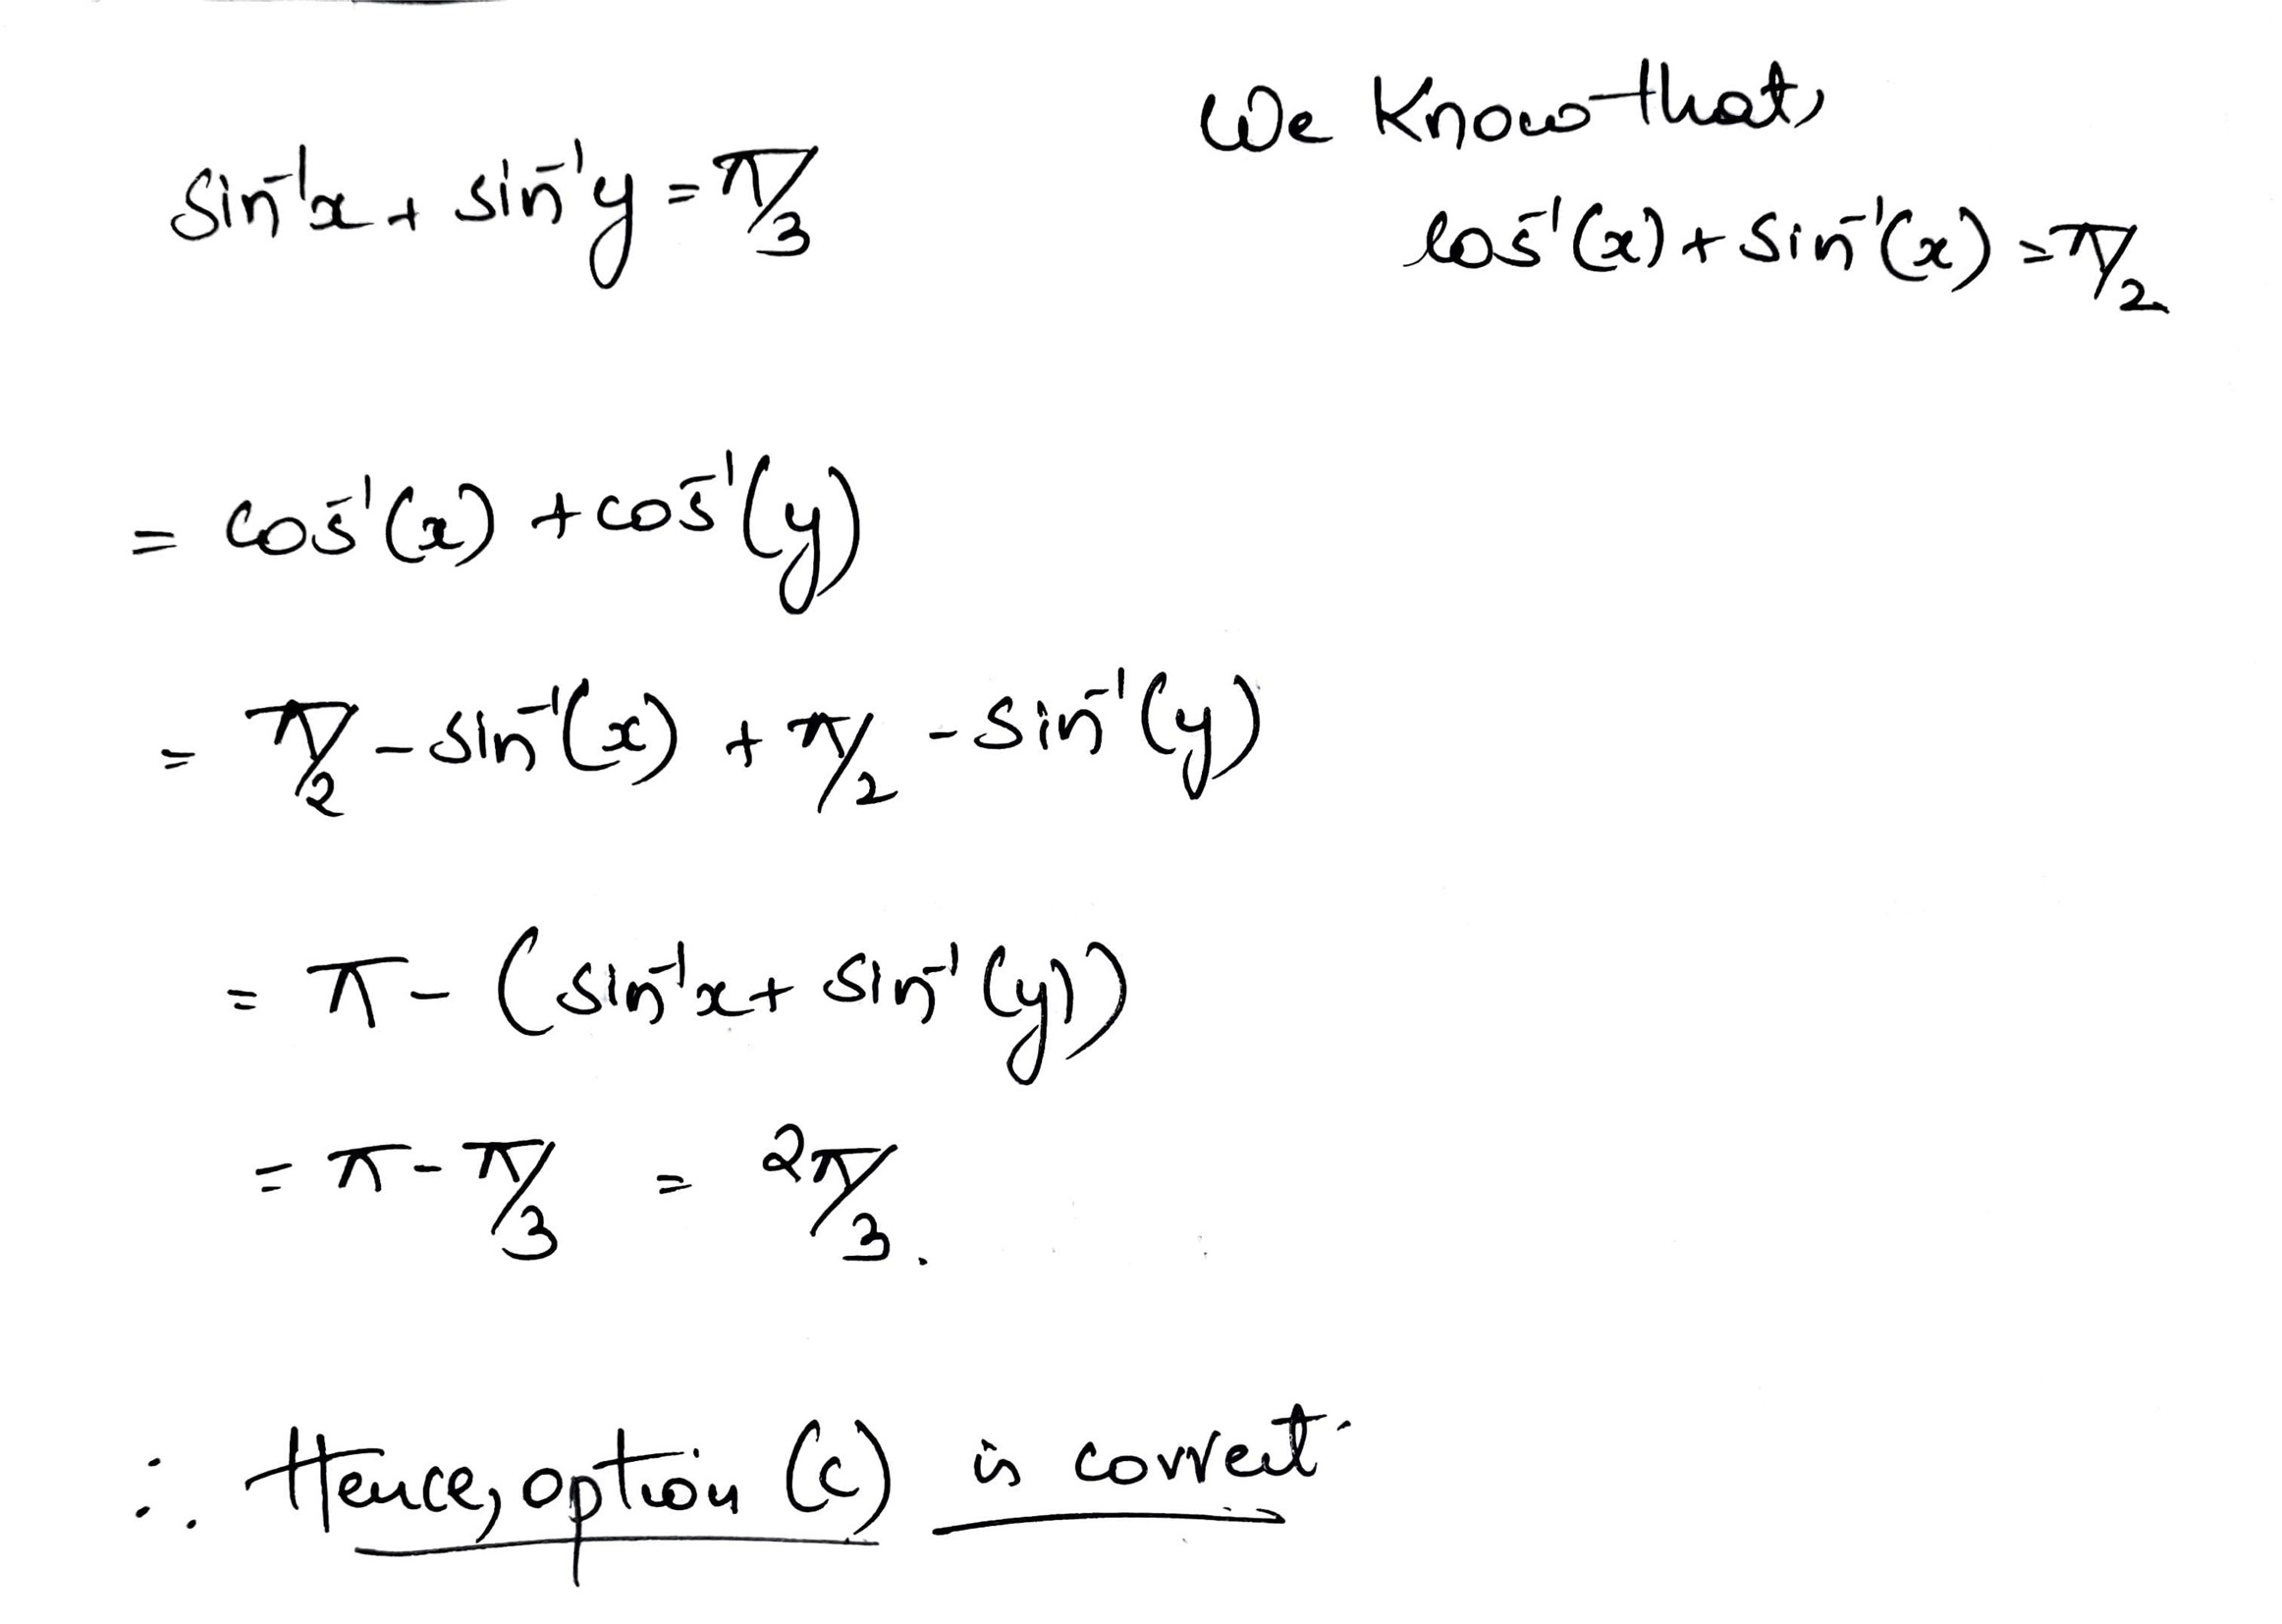 We know that,
sin⁻¹x + sin⁻¹y = π/3
cos⁻¹(x) + sin⁻¹(x) = π/2
= cos⁻¹(x) + cos⁻¹(y)
= π/2 - sin⁻¹(x) + π/2 - sin⁻¹(y)
= π - (sin⁻¹x + sin⁻¹(y))
= π - π/3 = 2π/3.
∴ Hence, option (c) is correct.